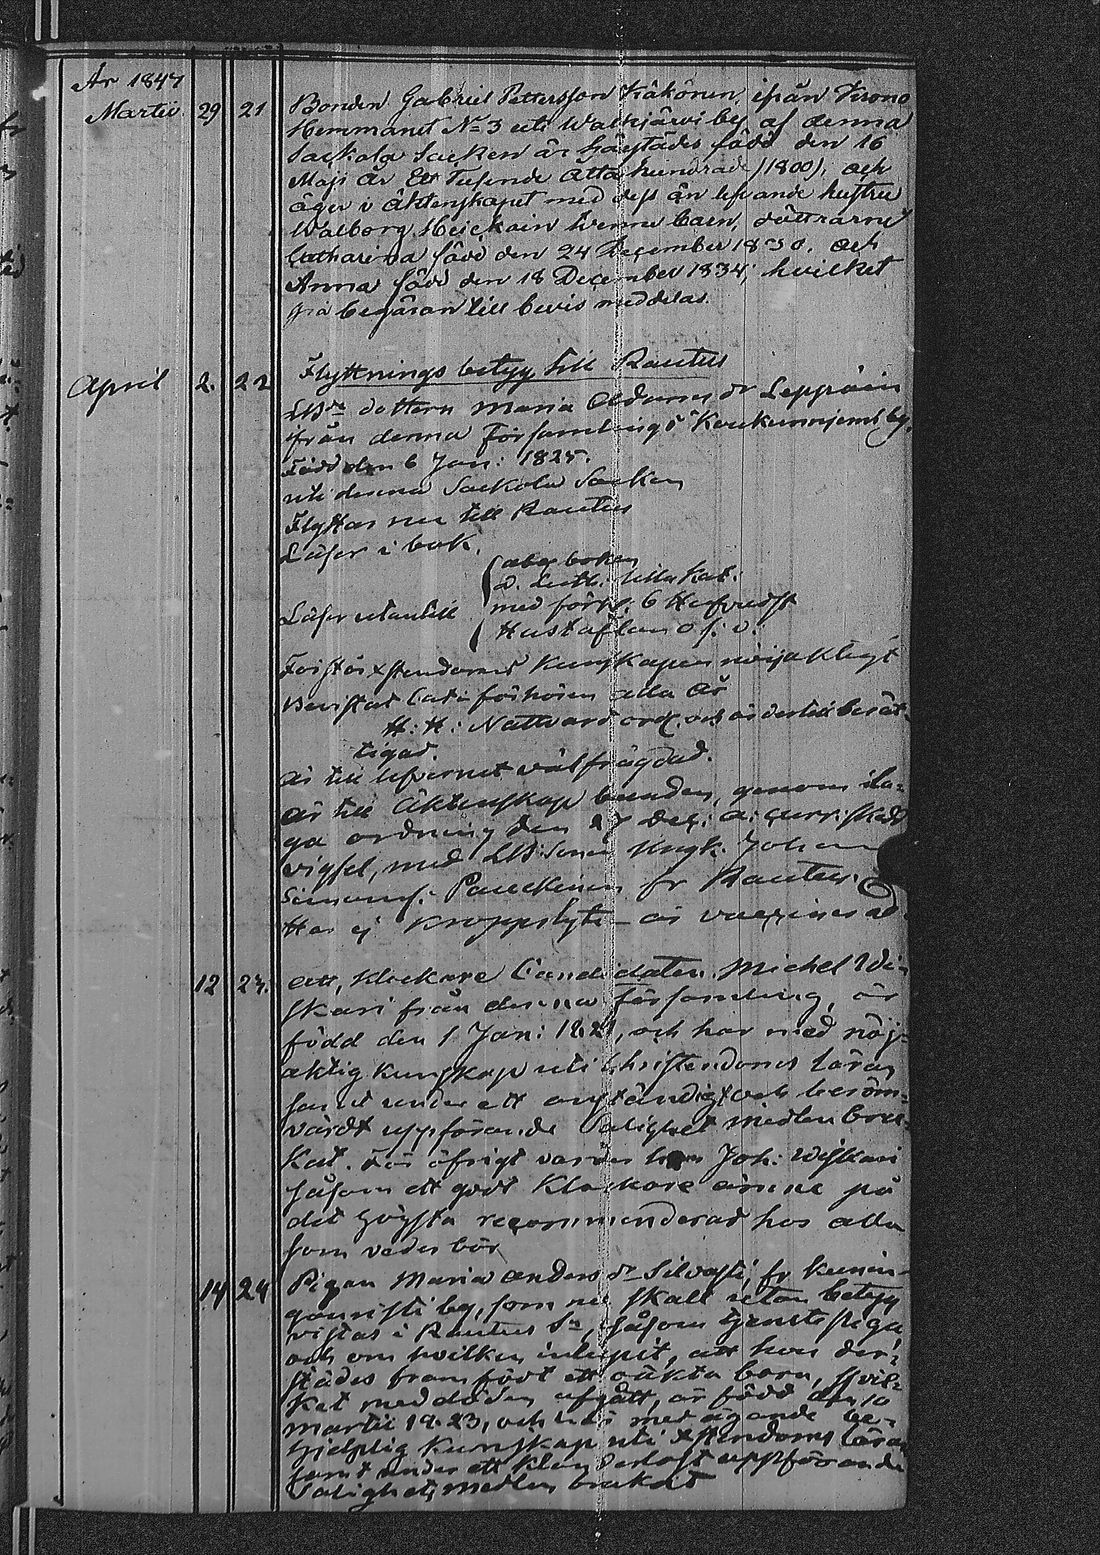 År 1847
Martii 29 21 Bonden Gabriel Pettersson Käkönen, ifrån Krono
Hemmanet No 3 uti Walkjärvi by af denna
Sackola Socken är härstädes född den 16
Maji År Ett Tusende Åtta hundrade (1800), och
äger i äktenskapet med dess än lefvande hustru
Walborg Heickain tvenne barn, döttrarne
Catharina född den 24 December 1830. och
Anna född den 18 December 1834, hvilket
på begäran till bevis meddelas.
April 2. 22 Flyttnings betyg till Rautus
LBde dottern Maria Adams dr Leppäin
från denna Församlings Koukunniemi by.
Född den 6 Jan: 1825.
uti denna Sackola Socken
Flyttar nu till Rautus
Läser i bok.
Läser utantill
abc boken
D. Luth. lilla Kat:
med förkl. 6 Hufvudst
Hustaflan o. s. v.
Förstår Xstendoms Kunskapen nöjaktligt
Bevistat Cat: förhören alla År
H: H: Nattvard och är dertill berät-
tigad.
är till lefvernet välfrägdad.
är till Äktenskap bunden, genom la-
ga ordning den 27 Dec: a: curr: skedd
vigsel, med LBSonen Ungk. Johan
Simons: Paukkunen fr Rautus.
Har ej Kroppslyte är vaccinerad.
12 23. att, Klockare Candidaten Michel Wi
skari från denna Församling, är
född den 1 Jan: 1821, och har med nöj-
aktig kunskap uti Christendoms läran
samt under ett anständigt och beröm-
värdt uppförande Salighets medlen bru-
kat. För öfrigt varder han Joh: Wiskari
såsom ett godt Klockare ämne på
det högsta recommenderad hos alla
som veder bör
14 24 Pigan Maria Anders dr Silvasti, fr Kunin-
ganristi by, som nu skall utan betyg
vistas i Rautus Sn, såsom tjenste piga
och om hvilken inlupit, att hon der-
städes framfödt ett oäkta barn, hvil-
ket med döden afgått, är född den 10
Martii 1823, och har med ägande be-
hjelplig Kunskap uti Xstendoms läran
samt under ett klanderlöst uppförande
Salighets medlen brukat